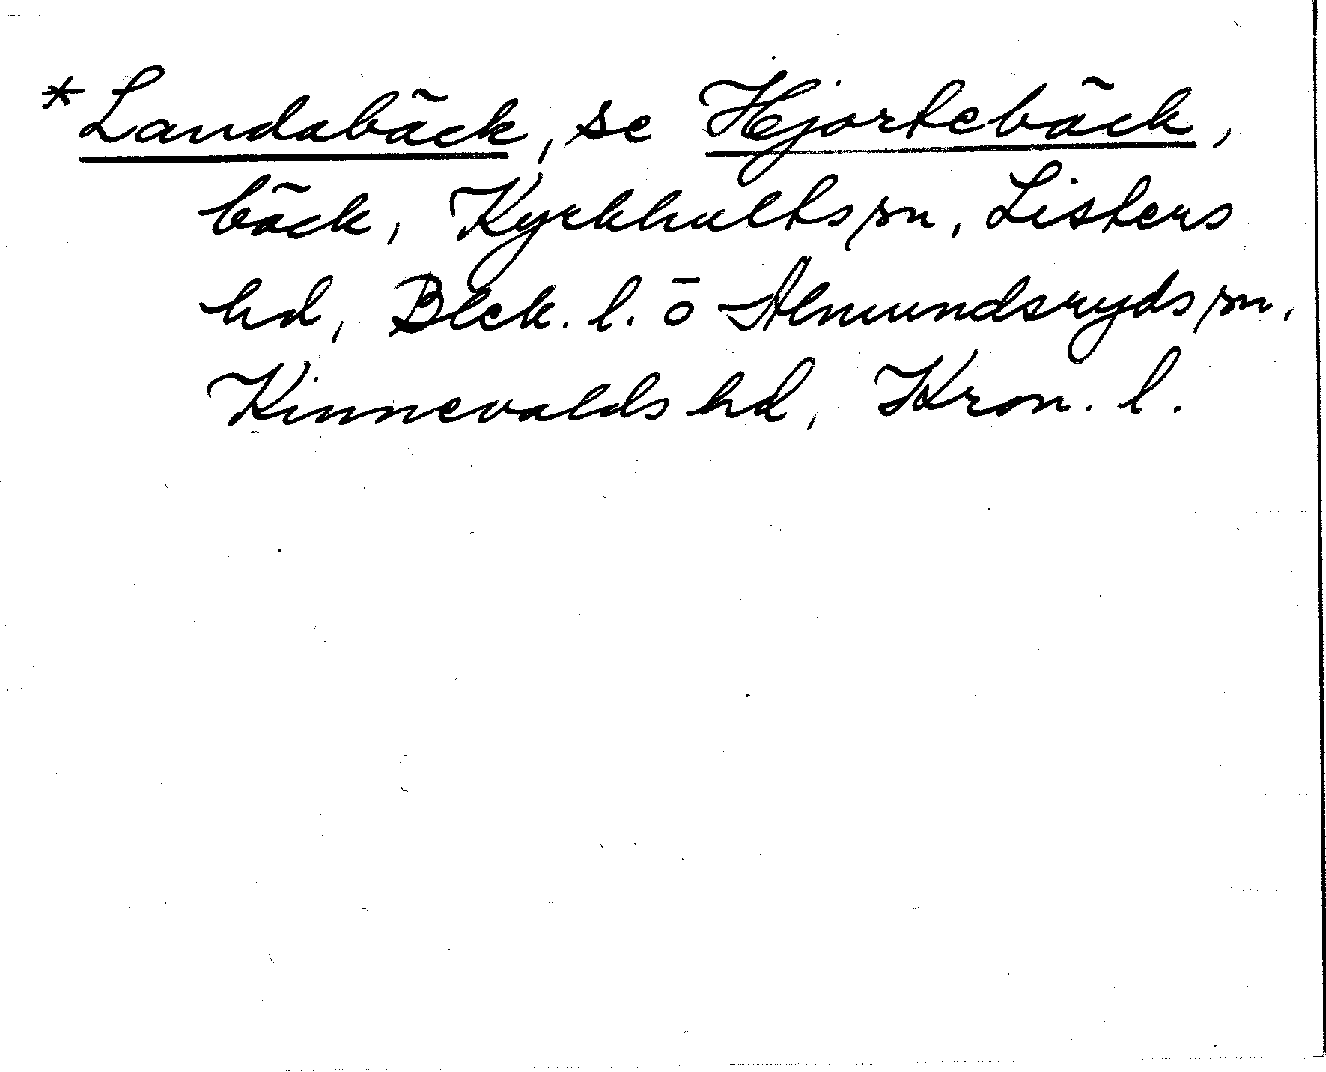 *Landabäck, se Hjortebäck,
bäck, Kyrkhults sn, Listers
hd, Blek. l. o Almundsryds sn,
Kinnevalds hd, Kron. l.